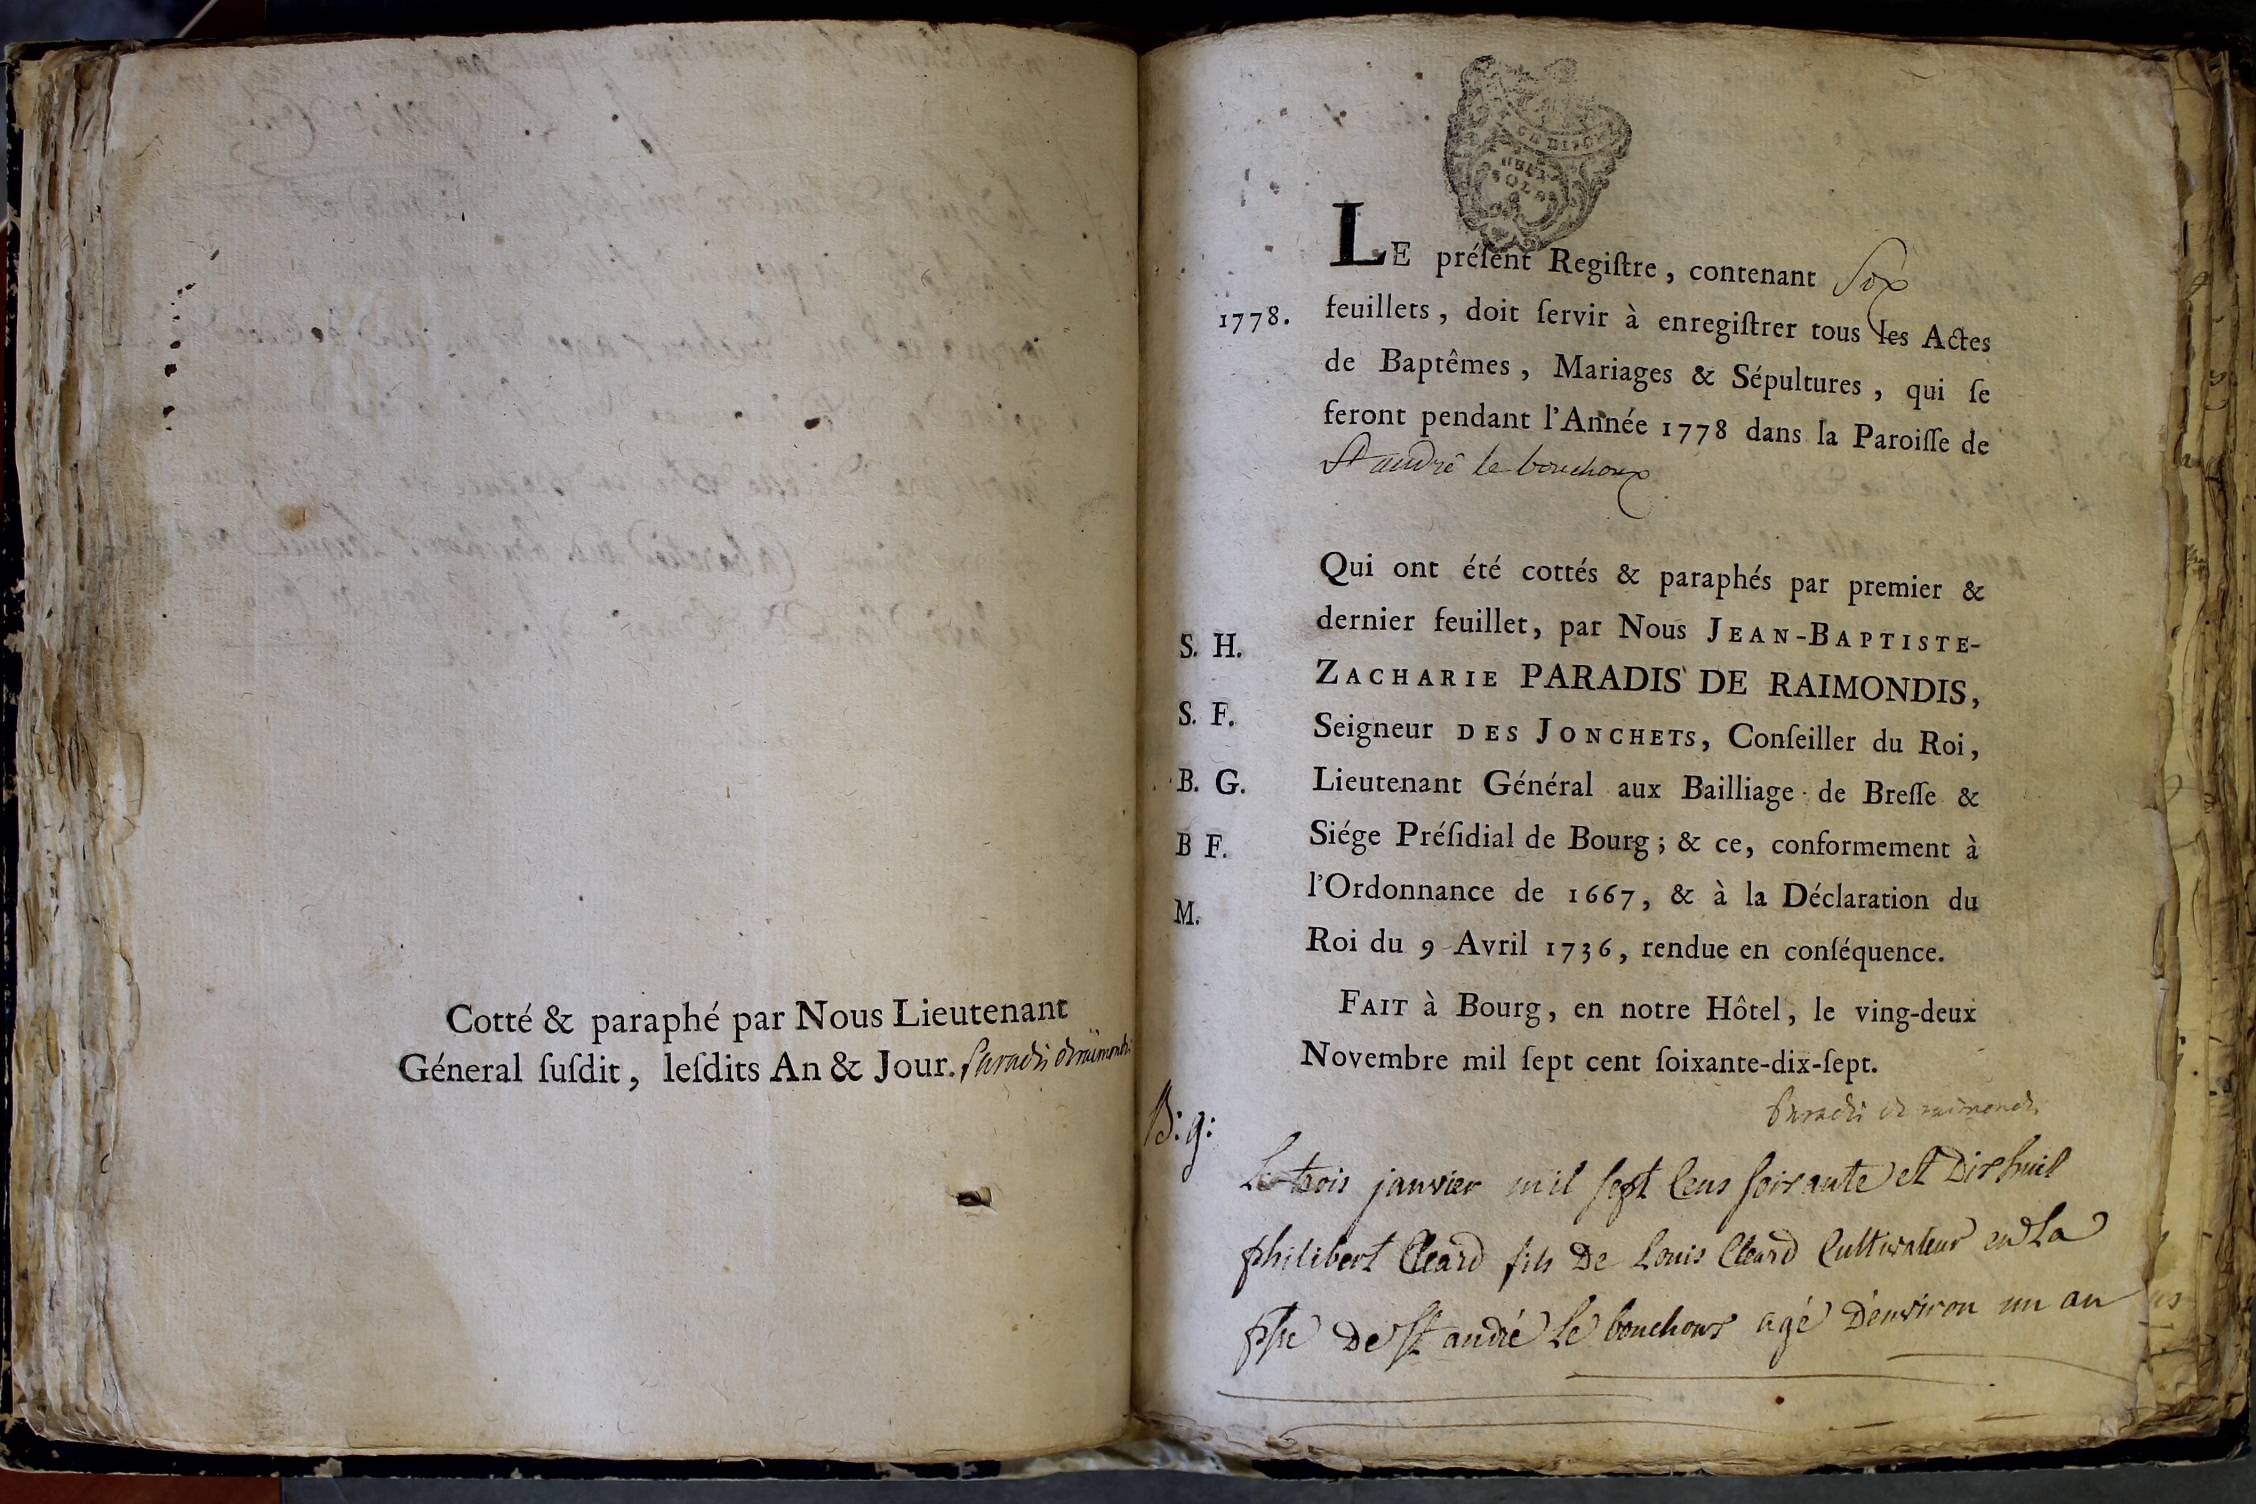 Cotté & paraphé par Nous Lieutenant
Géneral ſuſdit, leſdits An & Jour. Paradis de raimondis
LE préſent Regiſtre, contenant Six
1778.
feuillets, doit ſervir à enregiſtrer tous les Actes
de Baptêmes, Mariages & Sépultures, qui ſe
feront pendant l'Année 1778 dans la Paroiſſe de
St andré le bouchoux
Qui ont été cottés & paraphés par premier &
dernier feuillet, par Nous JEAN-BAPTISTE-
S. H.
ZACHARIE PARADIS DE RAIMONDIS,
S. F.
Seigneur DES JONCHETS, Conſeiller du Roi,
B. G.
Lieutenant Général aux Bailliage de Breſſe &
B F.
Siége Préſidial de Bourg; & ce, conformement à
l'Ordonnance de 1667, & à la Déclaration du
M.
Roi du 9 Avril 1736, rendue en conſéquence.
FAIT à Bourg, en notre Hôtel, le ving-deux
Novembre mil ſept cent ſoixante-dix-ſept.
Paradis de raimondis
B: g:
Le trois janvier mil sept Cens soixante et Dixhuit
philibert Cleard fils De Louis Cleard Cultivateur en La
psse De St andré Le bouchoux agé D'environ un an